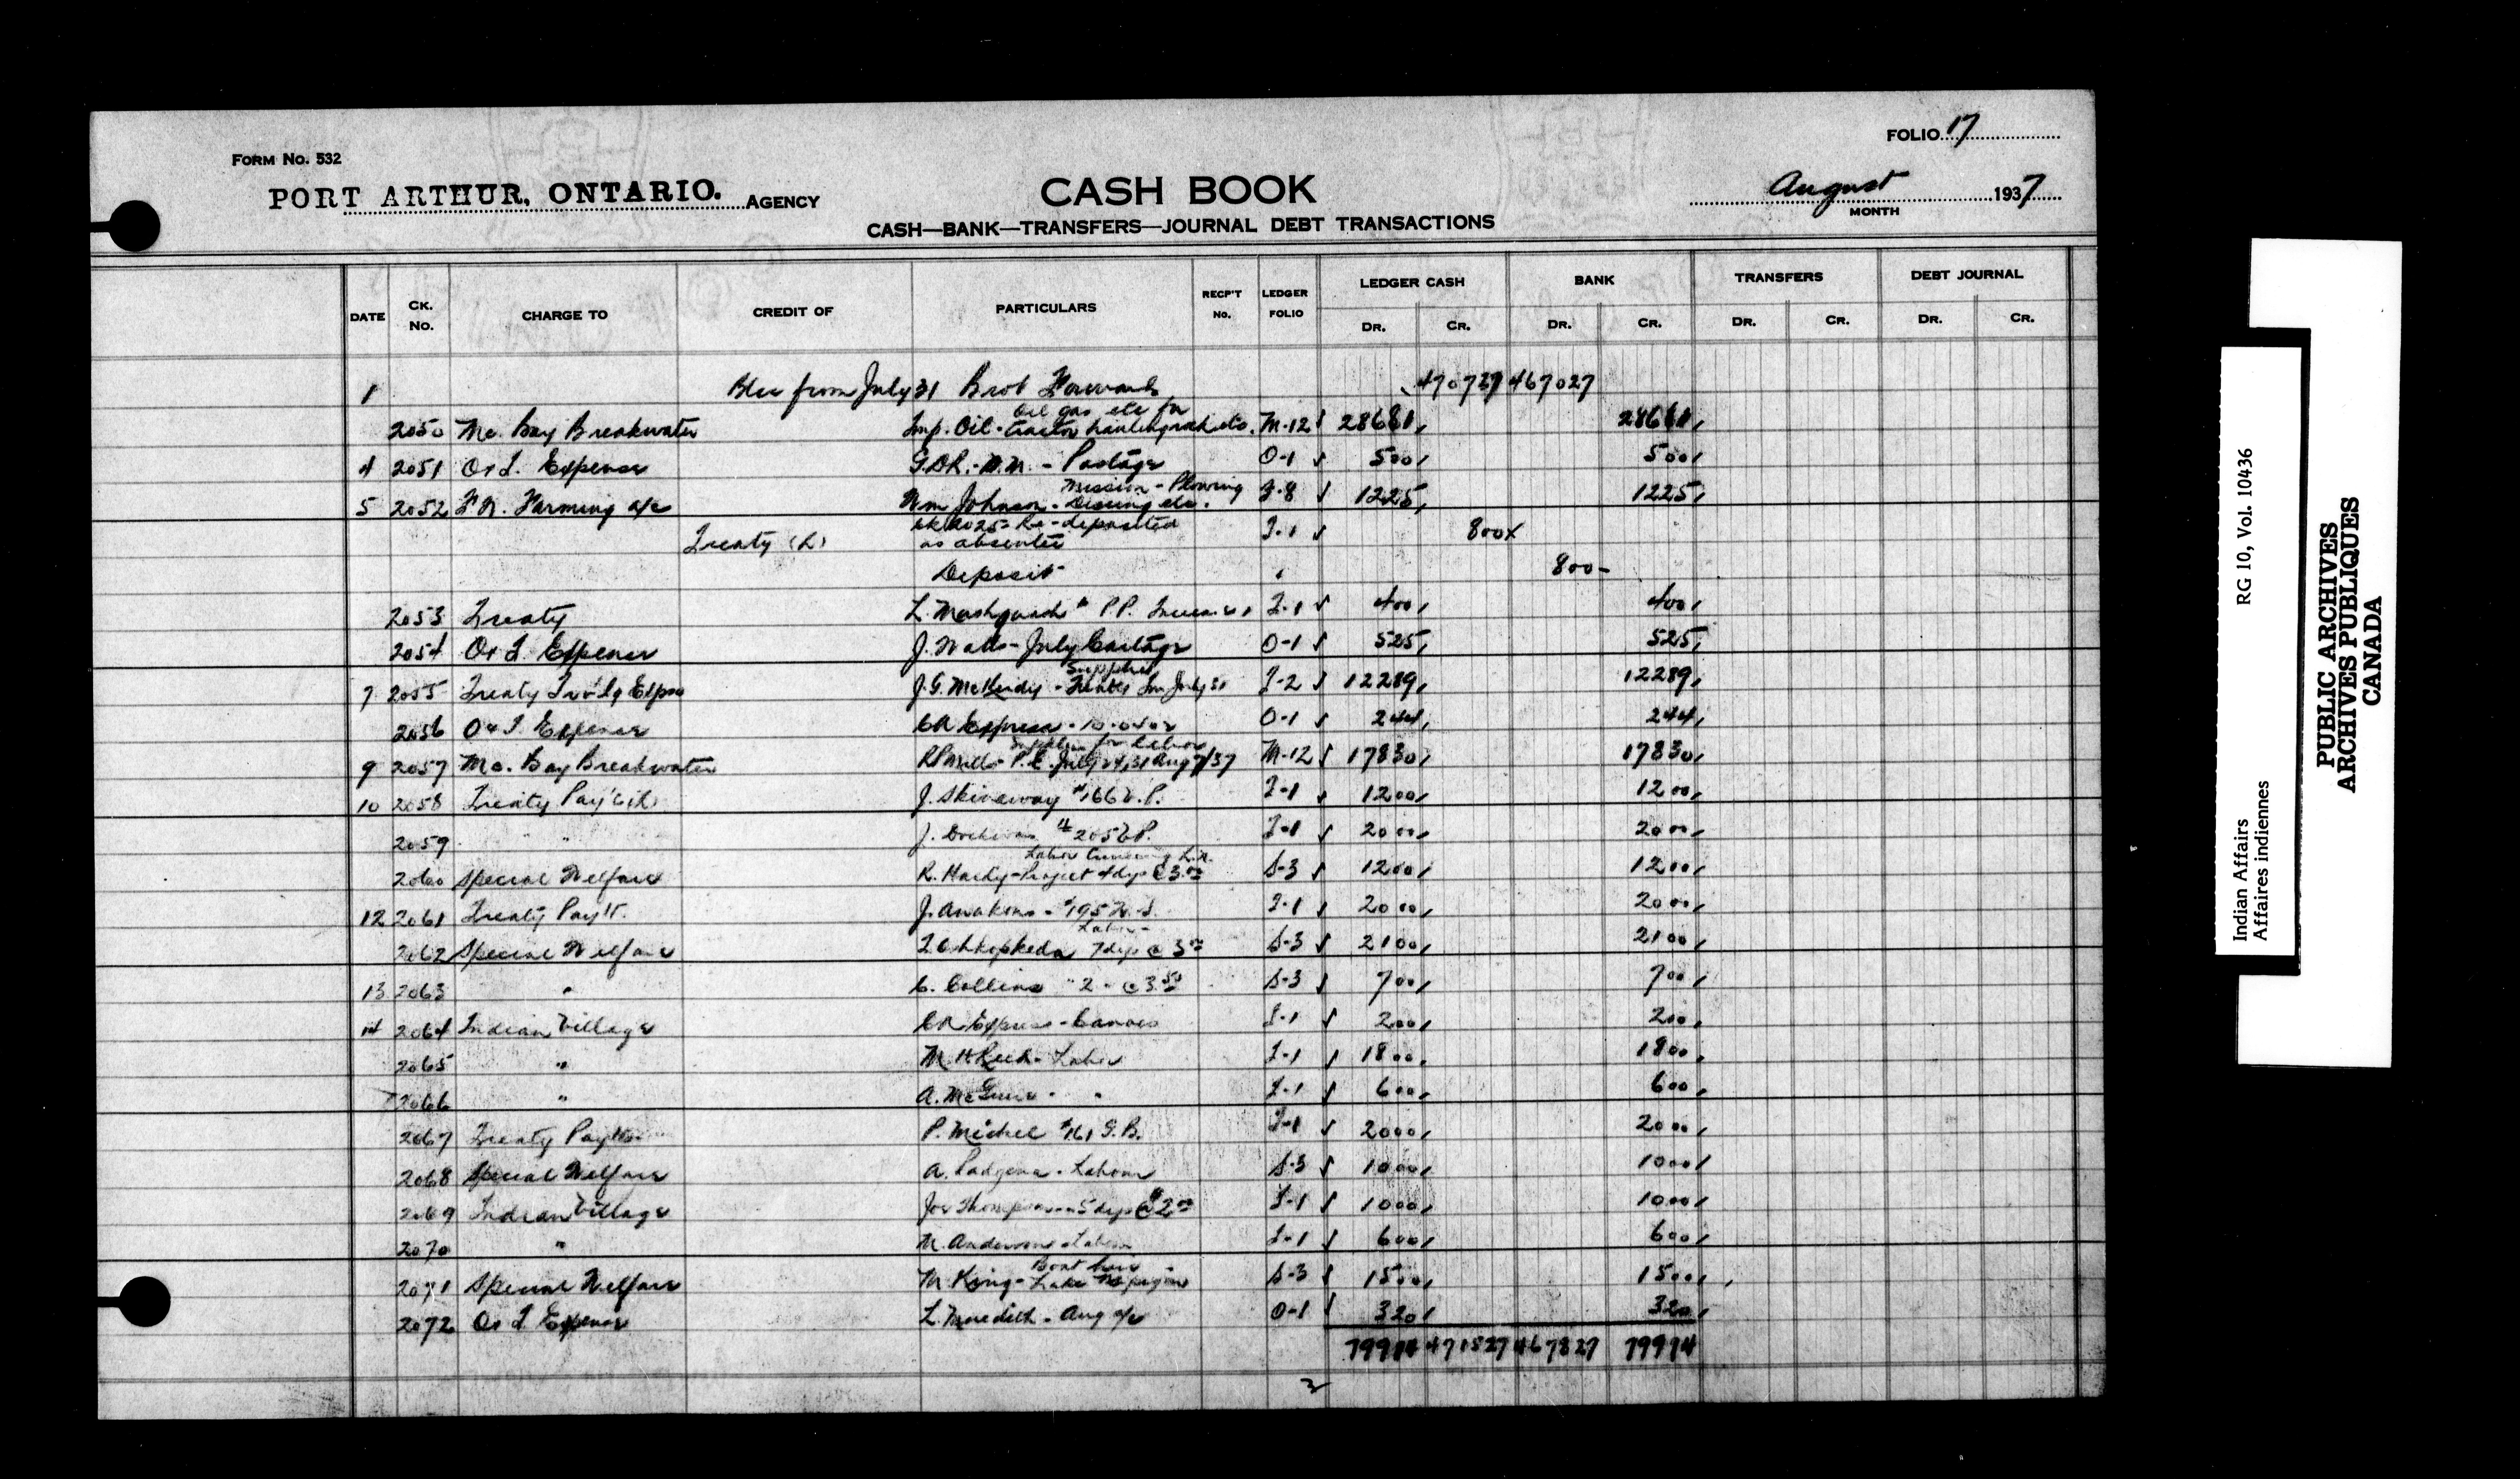 FOLIO 17
FORM No. 532
PORT ARTHUR, ONTARIO. AGENCY
CASH BOOK
August 1937
MONTH
CASH—BANK—TRANSFERS—JOURNAL DEBT TRANSACTIONS
DATE CK. No. CHARGE TO CREDIT OF PARTICULARS RECP'T No. LEDGER FOLIO LEDGER CASH BANK TRANSFERS DEBT JOURNAL
DR. CR. DR. CR. DR. CR. DR. CR.
1 from July 31 Brot Forward 470727 467027
Oil gas etc for
2050 Mc. Bay Breakwater Imp. Oil - tractor etc. M-12 28681 28681
4 2051 Ord. Expense - Postage O-1 500 500
Mission - Plowing
5 2052 F.W. Farming a/c Wm Johnson - Discing etc. J-8 1225 1225
Treaty (R) ck 2025 Re-deposited J-1 800
as absentee
Deposit 800
2053 Treaty L. P.P. J-1 400 400
2054 Ord. Expense J. Watts - July Cartage O-1 525 525
Supplies
7 2055 Treaty J.G. McKirdy - July 31 J-2 12289 12289
2056 Ord. Expense CN Express O-1 244 244
Supplies for labor
9 2057 Mc. Bay Breakwater July 24, 31 Aug 7/37 M-12 17830 17830
10 2058 Treaty Pay't J. Skineway #166 J-1 1200 1200
2059 " " J. #205 J-1 2000 2000
Labor
2060 Special Welfare R. Hardy - Project 4 dys @ 3.00 S-3 1200 1200
12 2061 Treaty Pay't. J. Awakens - #195 J-1 2000 2000
Labor
2062 Special Welfare 7 dys @ 3.00 S-3 2100 2100
13 2063 " C. Collins " 2 " @ 3.50 S-3 700 700
14 2064 Indian Village CN Express - Canoes I-1 200 200
2065 " M. - Labor I-1 1800 1800
2066 " A. McGuire - " I-1 600 600
2067 Treaty Pay't P. Michel #161 G.B. J-1 2000 2000
2068 Special Welfare A. - Labour S-3 1000 1000
2069 Indian Village Joe Thompson - 5 dys @ $2.00 I-1 1000 1000
2070 " N. Anderson - Labour I-1 600 600
Boat hire
2071 Special Welfare M. King - Lake Nipigon S-3 1500 1500
2072 Ord. Expense L. Meredith - Aug a/c O-1 320 320
79914 471527 467827 79914
Indian Affairs RG 10, Vol. 10436
Affaires indiennes
PUBLIC ARCHIVES
ARCHIVES PUBLIQUES
CANADA